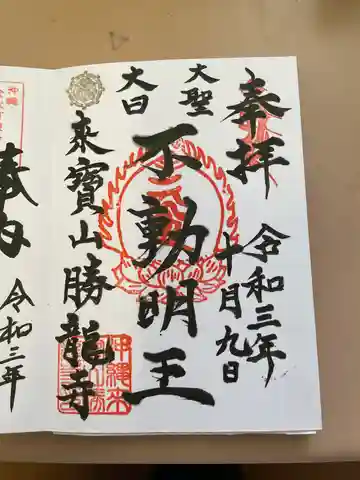 奉拝
令和三年
十月九日
大聖
大日
不動明王
来寶山勝龍寺
沖縄
奉納
令和三年